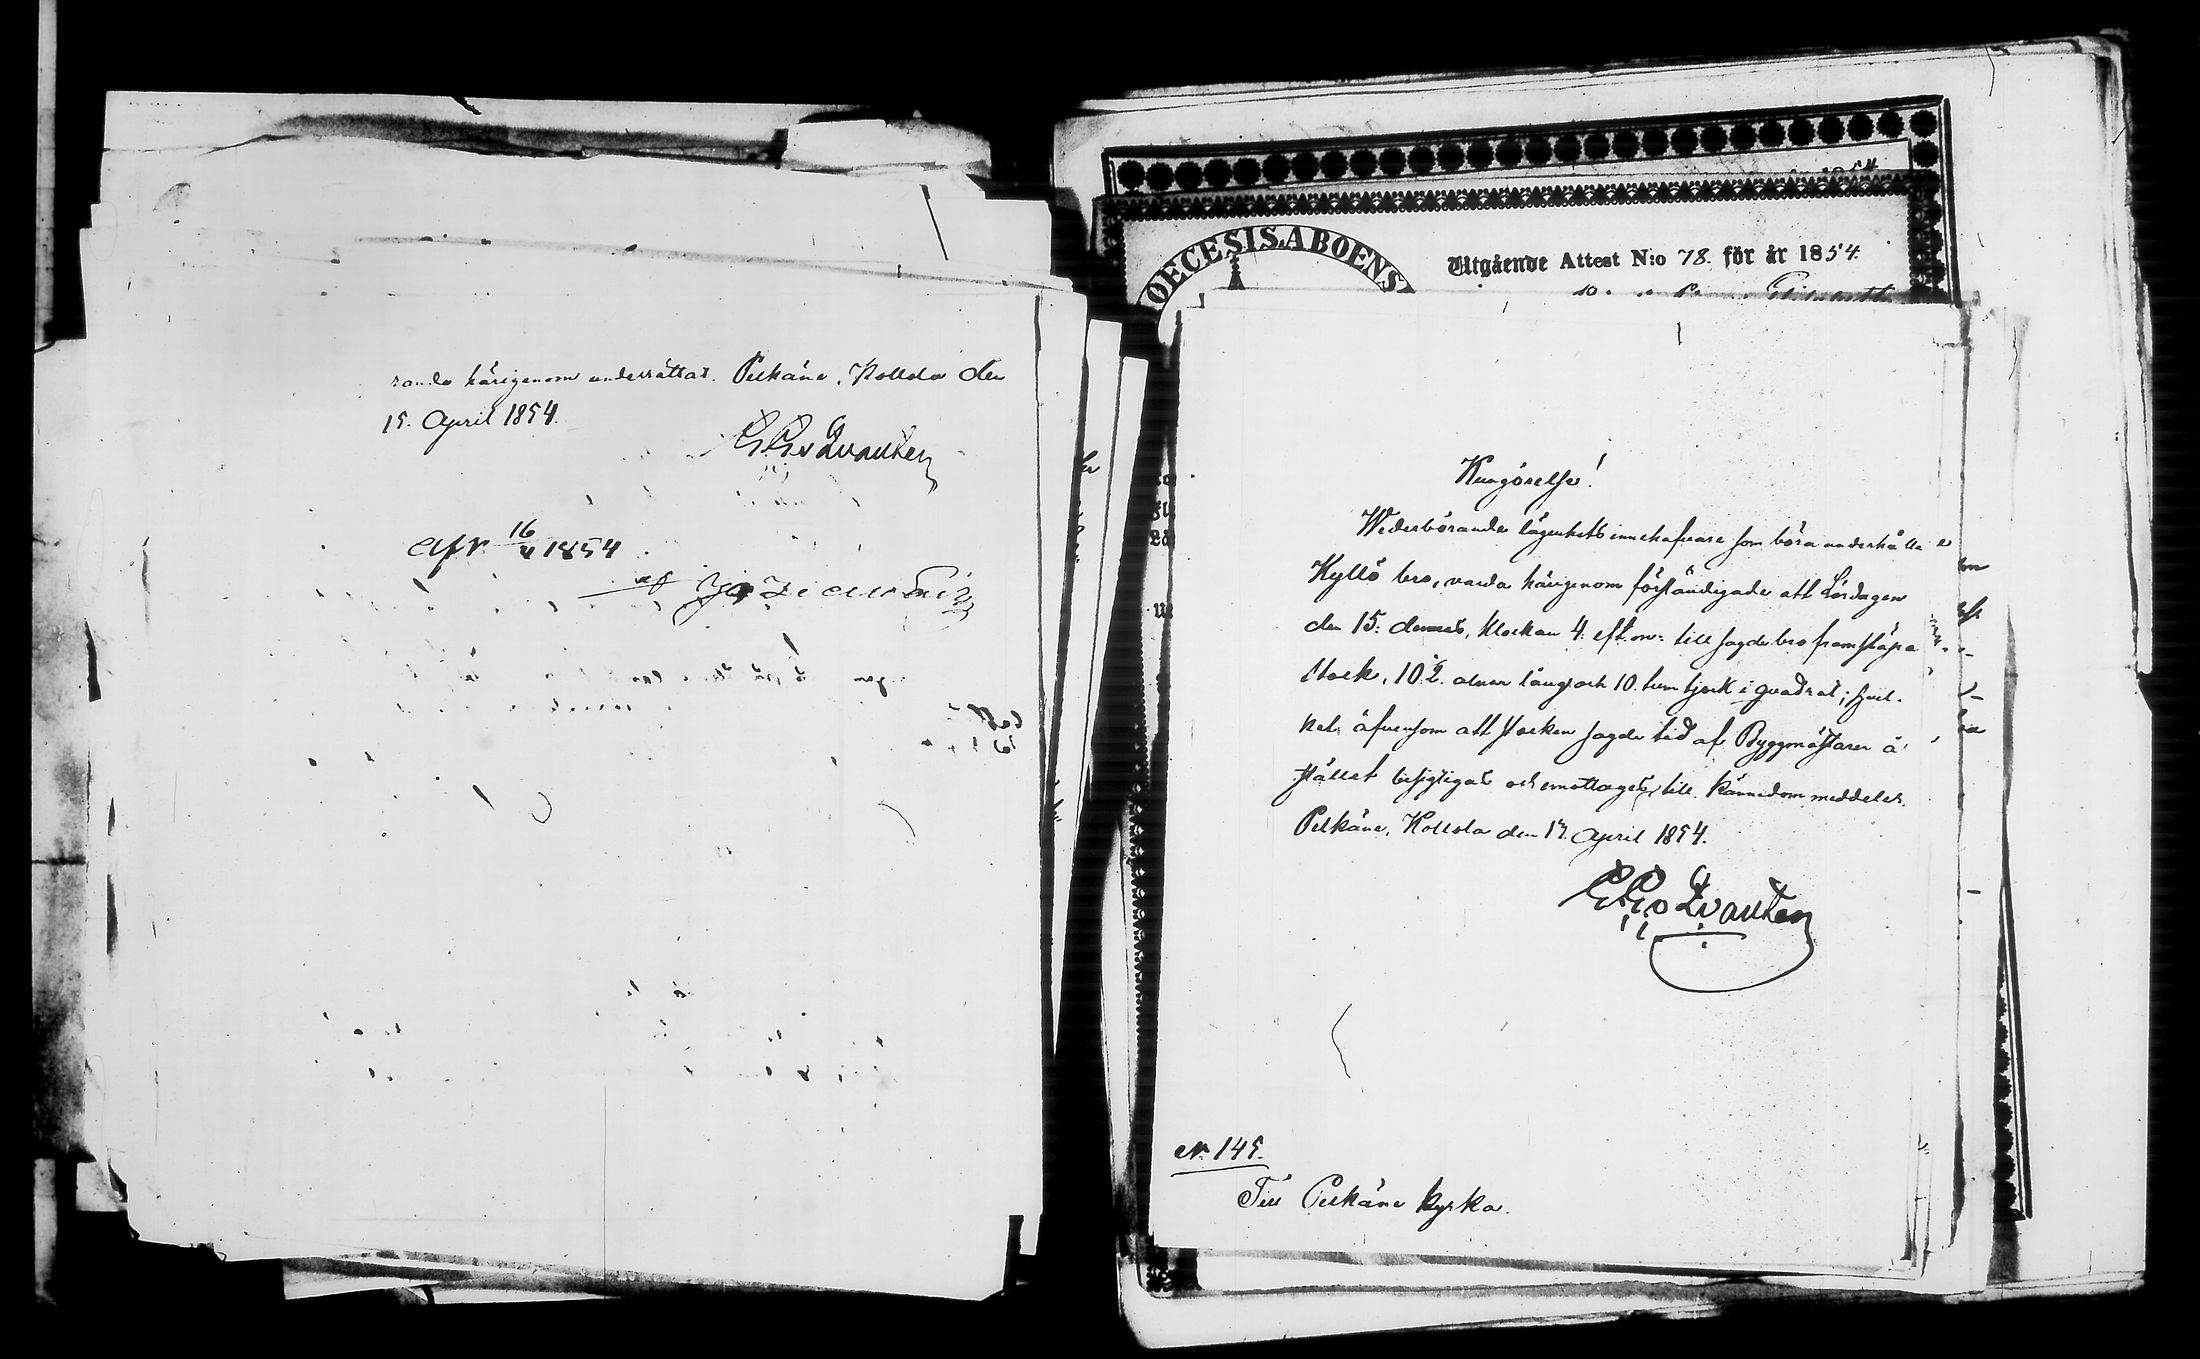 rande härigenom underrättas. Pelkäne, Kollola den
15. April 1854.
E G v Qvanten
Afk. 16/4 1854
af
OECESIS. ABOENS
Utgående Attest N:o 78. för år 1854.
Kungörelse!
Wederbörande lägenhets innehafvare som böra underhålla
Kyllö bro, varda härigenom förständigade att Lördagen
den 15: dennes, klockan 4. eft.m: till sagde bro framsläpa
stock, 10½. alnar lång och 10. tum tjock i quadrat; hvil-
ket, äfvensom att stocken sagde tid af Byggmästaren å
stället besigtigas och emottages, till kännedom meddelas.
Pelkäne, Kollola den 13. April 1854.
E G v Qvanten
N. 145.
Till Pelkäne kyrka.